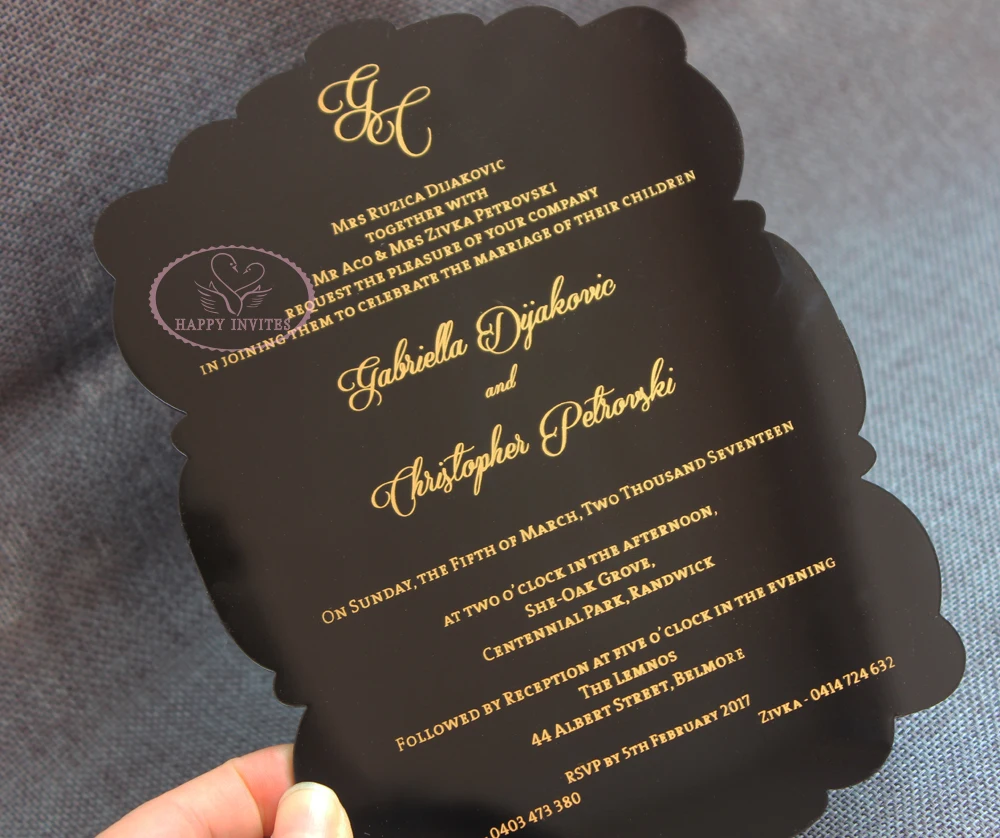 GC
Mrs Ruzica Dijakovic
together with
Mr Aco & Mrs Zivka Petrovski
request the pleasure of your company
in joining them to celebrate the marriage of their children
Gabriella Dijakovic
and
Christopher Petrovski
On Sunday, the Fifth of March, Two Thousand Seventeen
at two o'clock in the afternoon,
She-Oak Grove,
Centennial Park, Randwick
Followed by Reception at five o'clock in the evening
The Lemnos
44 Albert Street, Belmore
RSVP by 5th February 2017
- 0403 473 380
Zivka - 0414 724 632
HAPPY INVITES